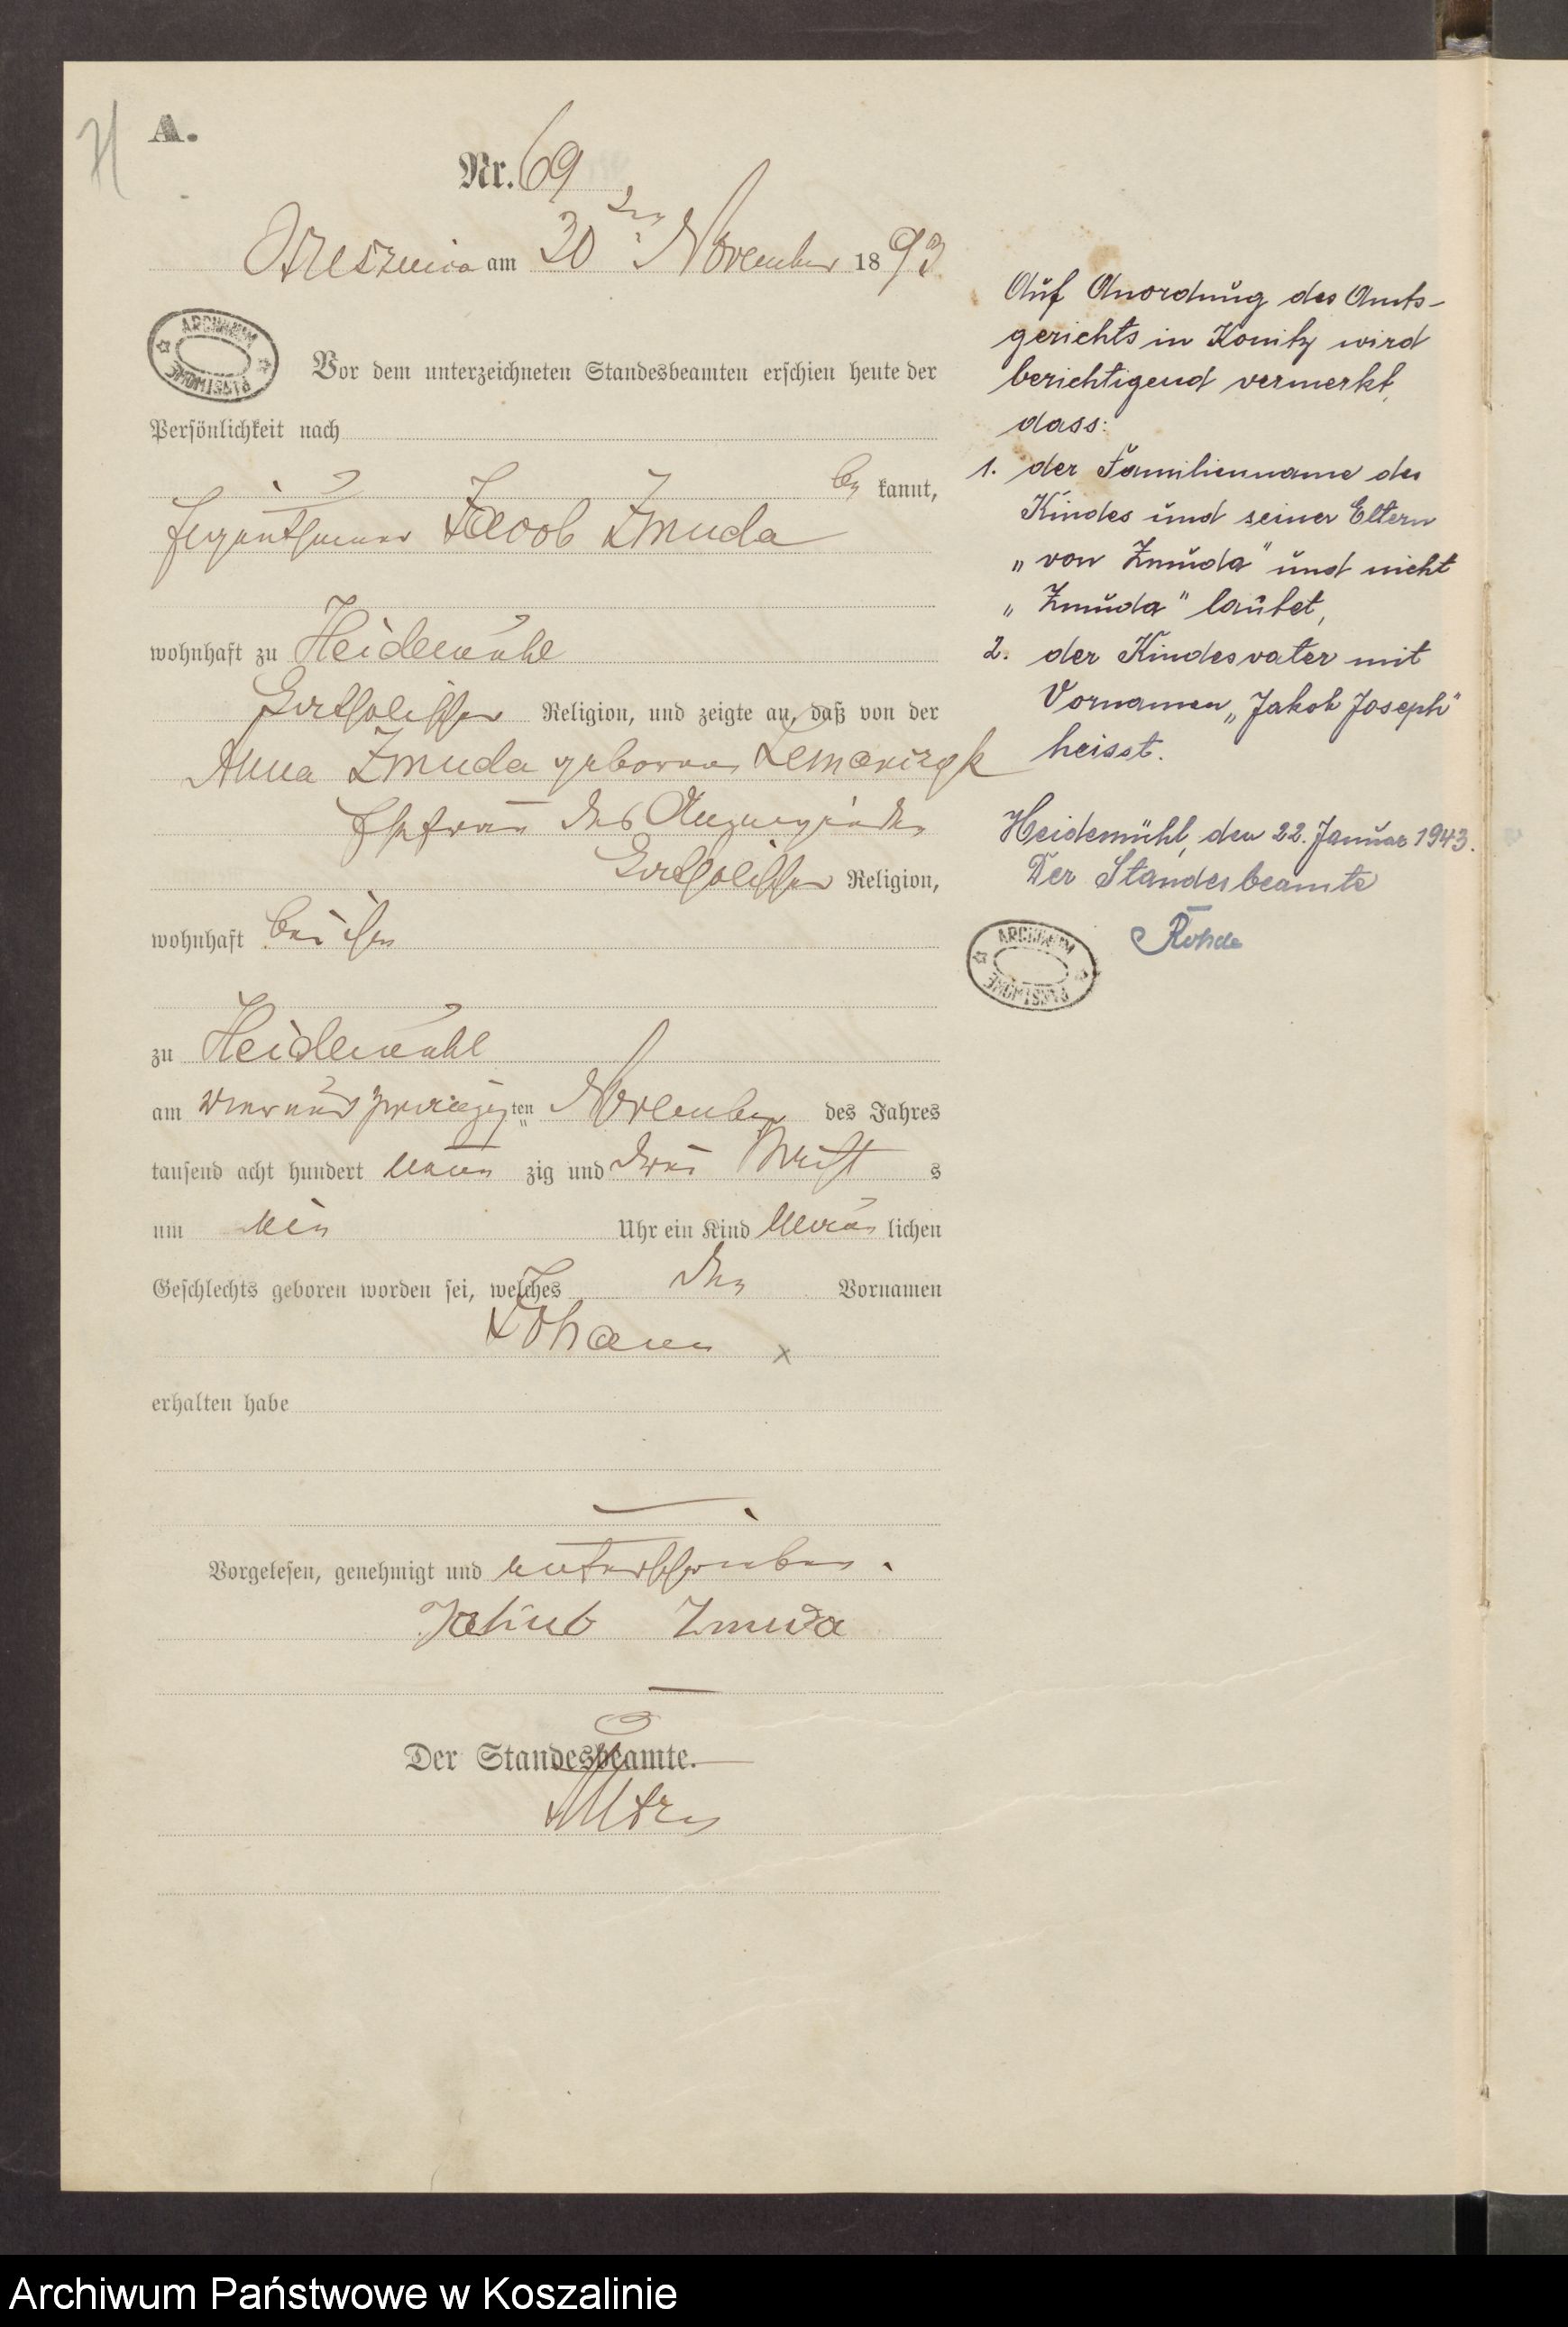 A.
Nr. 69
am 30ten November 1893
ARCHIWUM
PAŃSTWOWE
Vor dem unterzeichneten Standesbeamten erschien heute der
Persönlichkeit nach
be kannt,
Eigenthümer Jacob Zmuda
wohnhaft zu Heidemühl
katholischer Religion, und zeigte an, daß von der
Anna Zmuda geborene
Ehefrau des Anzeigenden
katholischer Religion,
wohnhaft bei ihm
zu Heidemühl
am vierundzwanzigsten November des Jahres
tausend acht hundert neun zig und drei
um Uhr ein Kind männ lichen
Geschlechts geboren worden sei, welches den Vornamen
Johann x
erhalten habe
Vorgelesen, genehmigt und unterschrieben.
Jakub Zmuda
Der Standesbeamte.
Auf Anordnung des Amts-
gerichts in Konitz wird
berichtigend vermerkt,
dass:
1. der Familienname des
Kindes und seiner Eltern
„von Zmuda" und nicht
„Zmuda" lautet,
2. der Kindesvater mit
Vornamen „Jakob Joseph"
heisst.
Heidemühl, den 22. Januar 1943.
Der Standesbeamte
Rohde
ARCHIWUM
PAŃSTWOWE
Archiwum Państwowe w Koszalinie